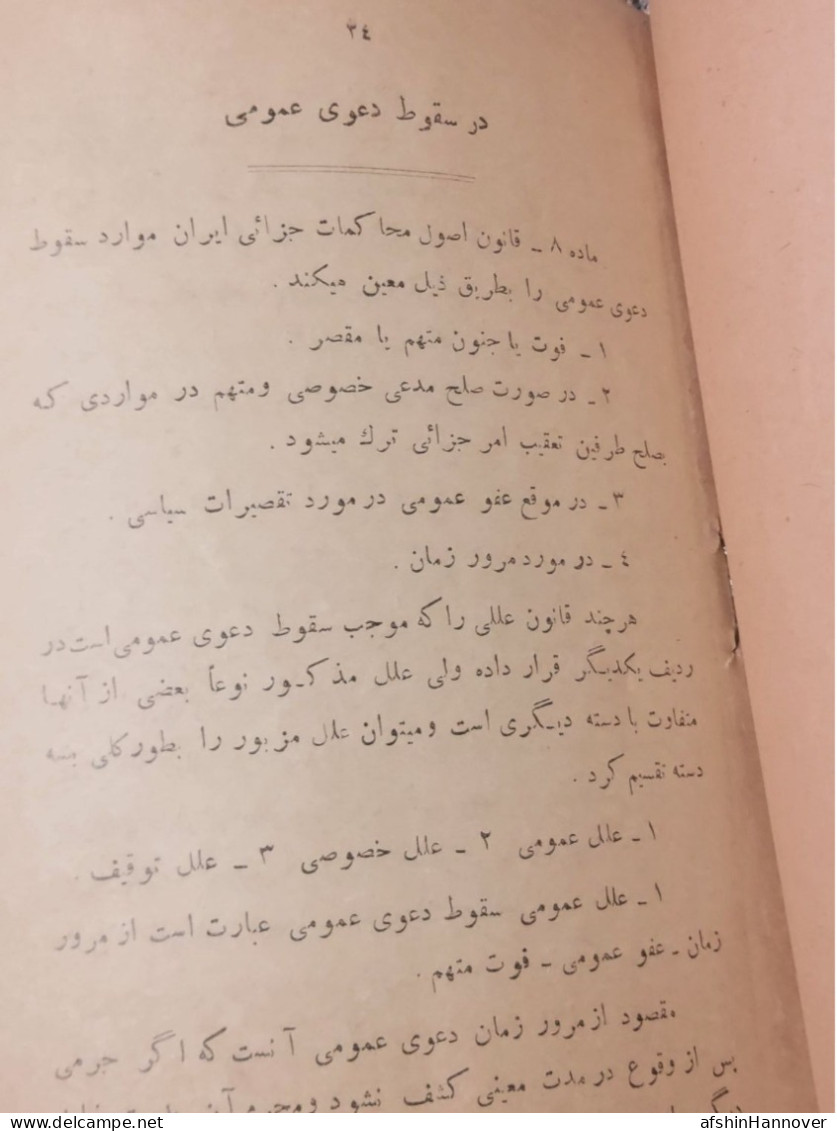 ٣٤
در سقوط دعوی عمومی
ماده ٨ ـ قانون اصول محاکمات جزائی ایران موارد سقوط
دعوی عمومی را بطریق ذیل معین میکند .
١ ـ فوت یا جنون متهم یا مقصر .
٢ ـ در صورت صلح مدعی خصوصی ومتهم در مواردی که
بصلح طرفین تعقیب امر جزائی ترك میشود .
٣ ـ در موقع عفو عمومی در مورد تقصیرات سیاسی .
٤ ـ در مورد مرور زمان .
هرچند قانون عللی را که موجب سقوط دعوی عمومی است در
ردیف یکدیگر قرار داده ولی علل مذکور نوعاً بعضی از آنها
متفاوت با دسته دیگری است ومیتوان علل مزبور را بطورکلی بسه
دسته تقسیم کرد .
١ ـ علل عمومی ٢ ـ علل خصوصی ٣ ـ علل توقیف .
١ ـ علل عمومی سقوط دعوی عمومی عبارت است از مرور
زمان ـ عفو عمومی ـ فوت متهم .
مقصود از مرور زمان دعوی عمومی آنست که اگر جرمی
پس از وقوع در مدت معینی کشف نشود ومجرم آن
afshinHannover
delcampe.net